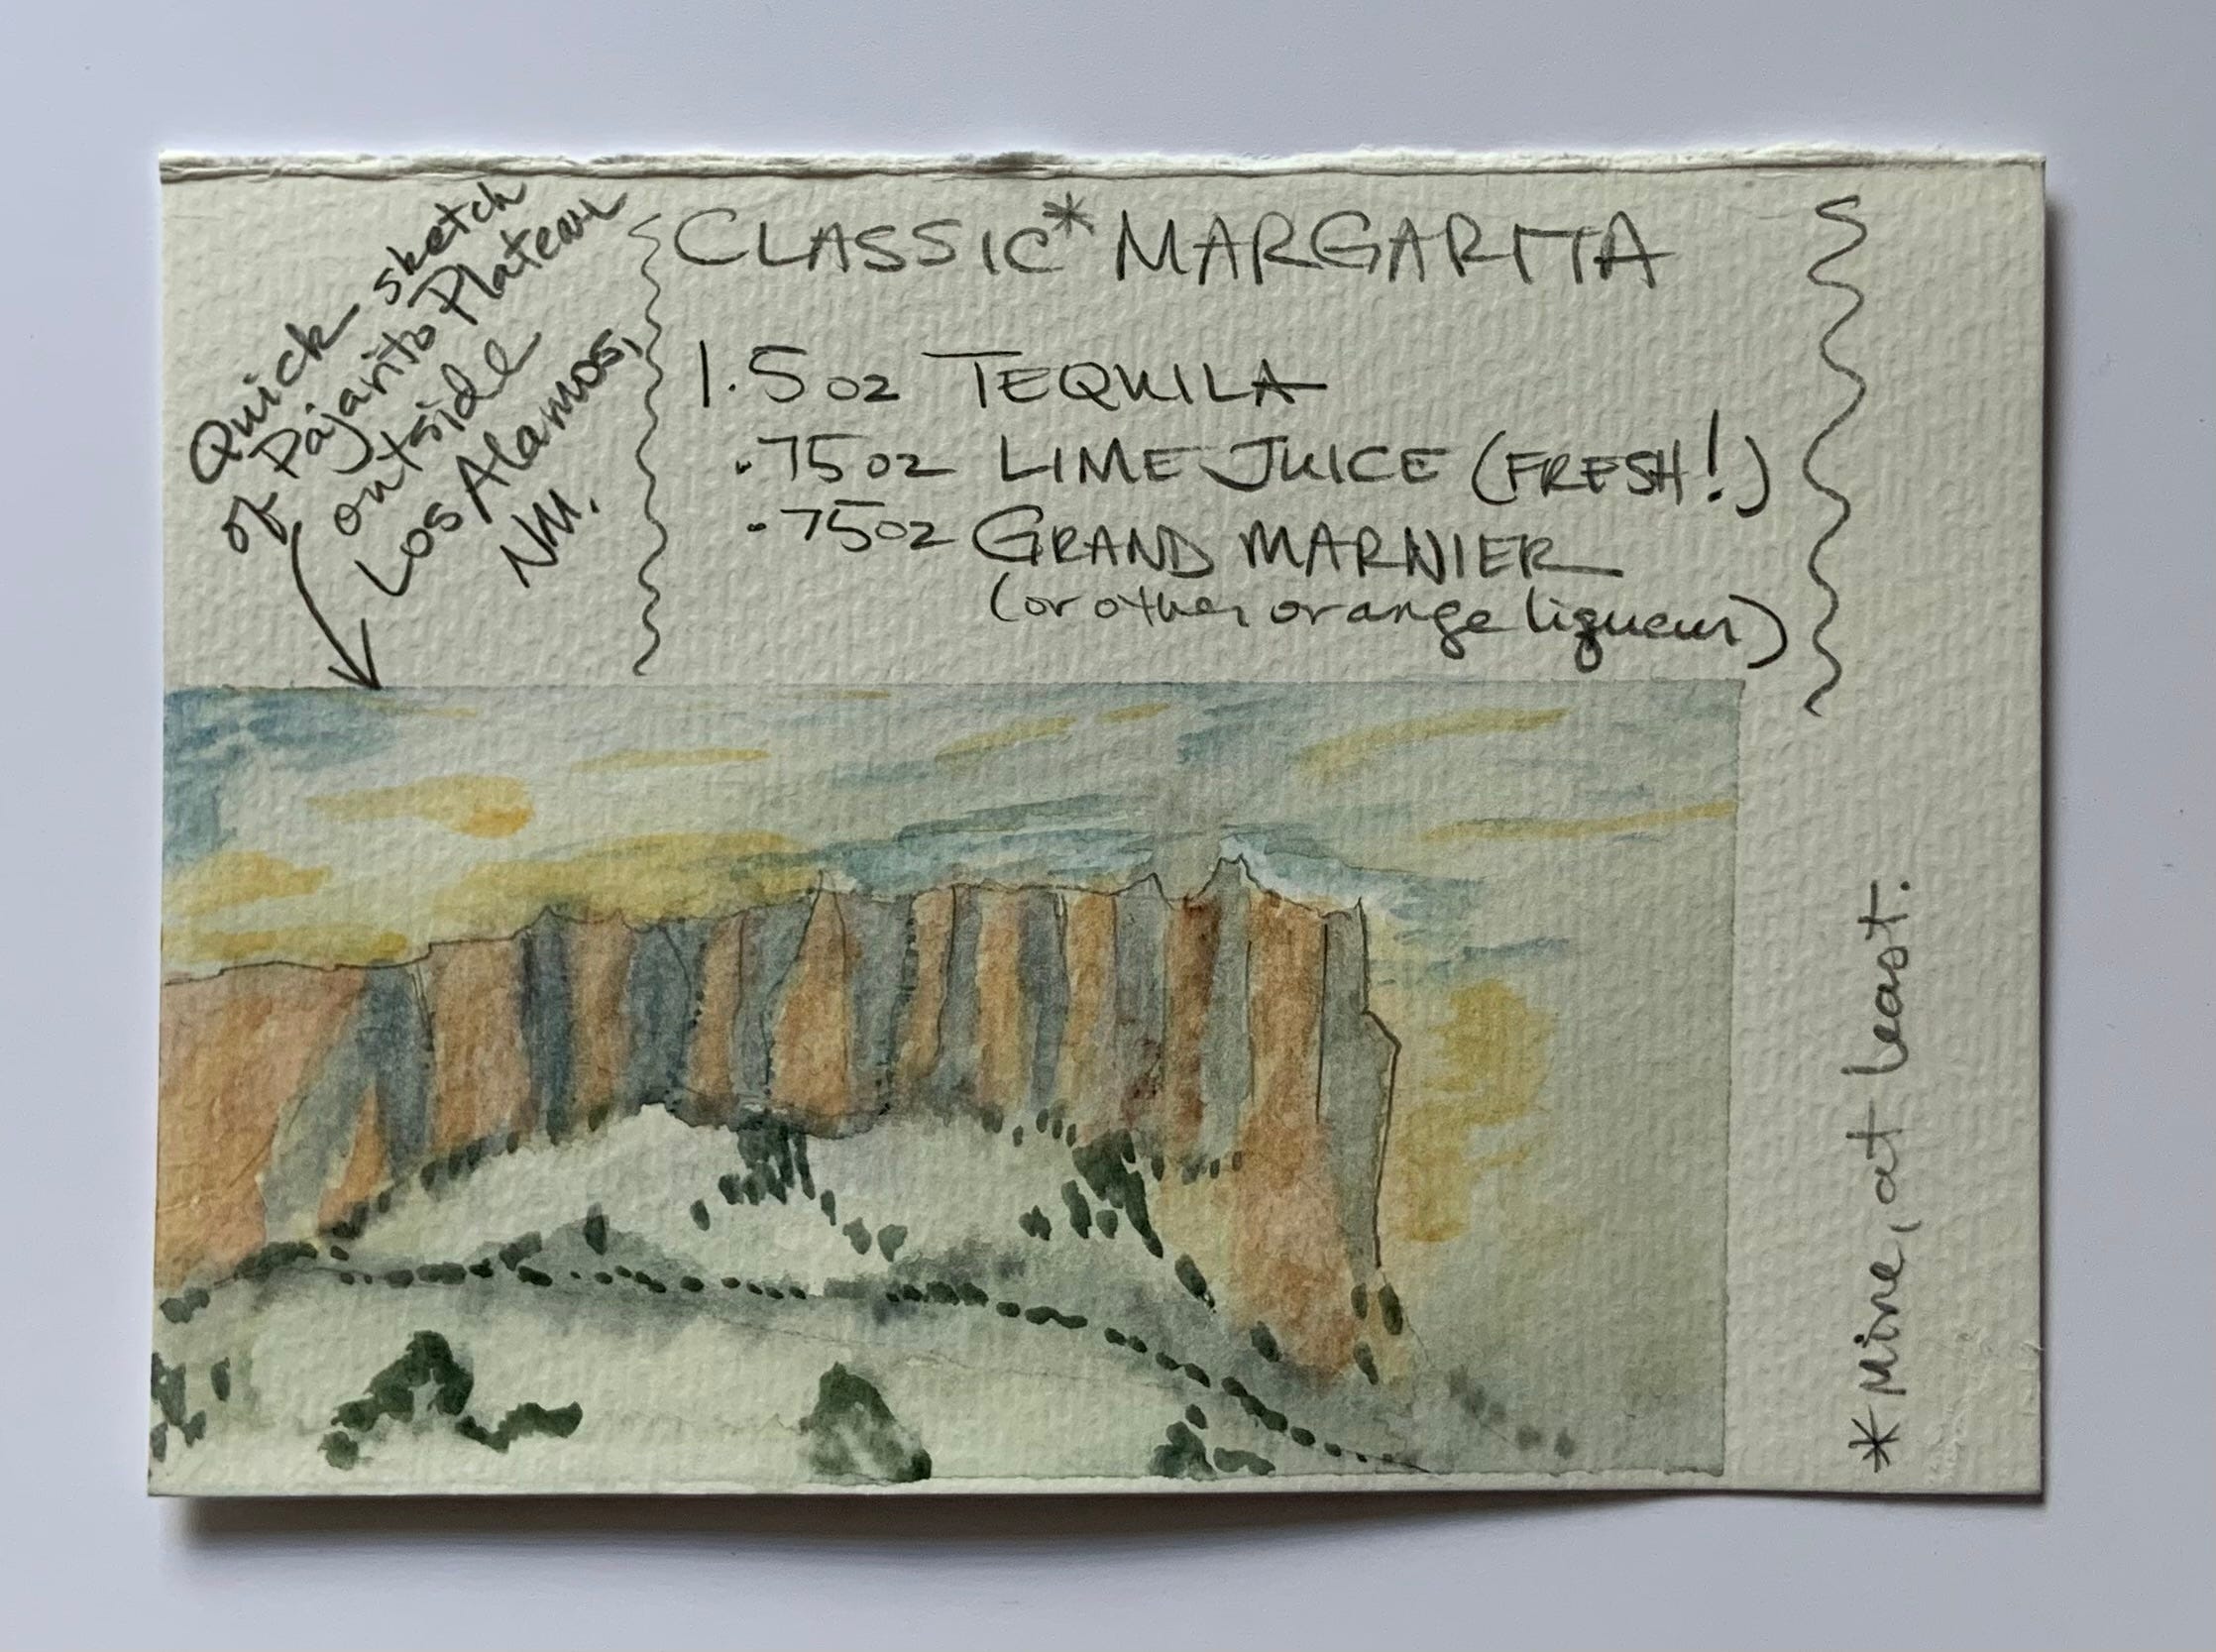 Quick sketch
of Pajarito Plateau
outside
Los Alamos,
NM.
CLASSIC* MARGARITA
1.5 oz TEQUILA
.75 oz LIME JUICE (FRESH!)
.75 oz GRAND MARNIER
(or other orange liqueur)
*Mine, at least.